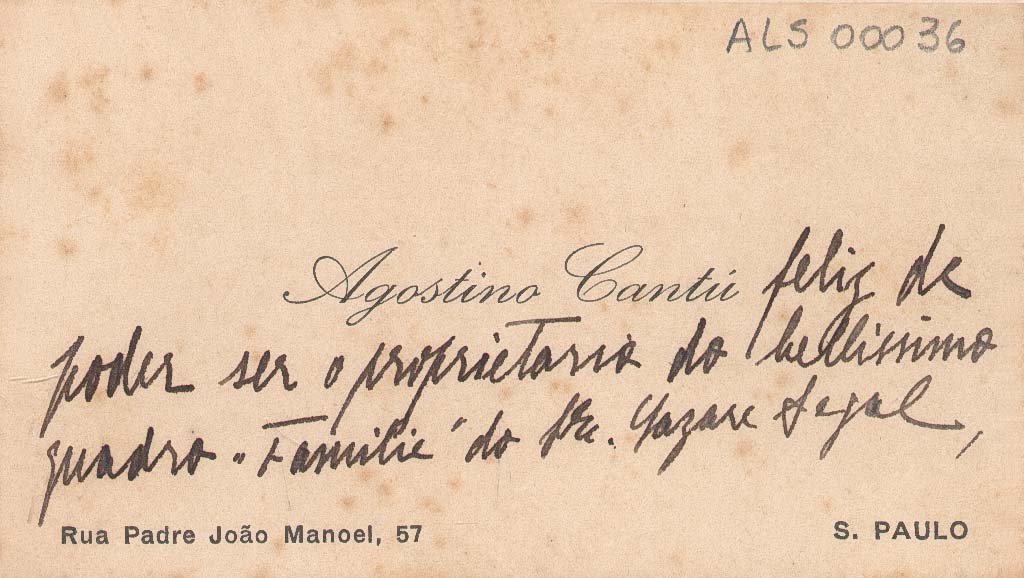 ALS 00036
Agostino Cantú feliz de
poder ser o proprietario do bellissimo
quadro "Familie" do Snr. Lazare Segal,
Rua Padre João Manoel, 57
S. PAULO